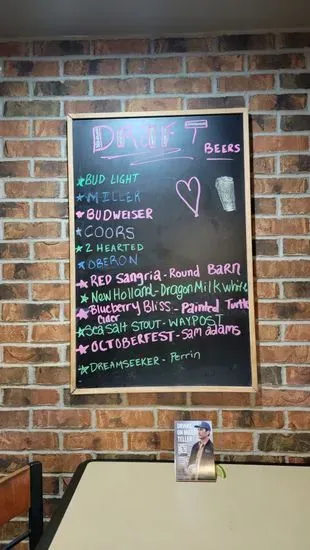 DRAFT
BEERS
BUD LIGHT
MILLER
BUDWEISER
COORS
2 HEARTED
OBERON
RED Sangria - Round Barn
New Holland - Dragon Milk White
Blueberry Bliss - Painted Turtle
Cider
Sea Salt Stout - WAYPOST
OCTOBERFEST - Sam adams
DREAMSEEKER - Perrin
TELLER